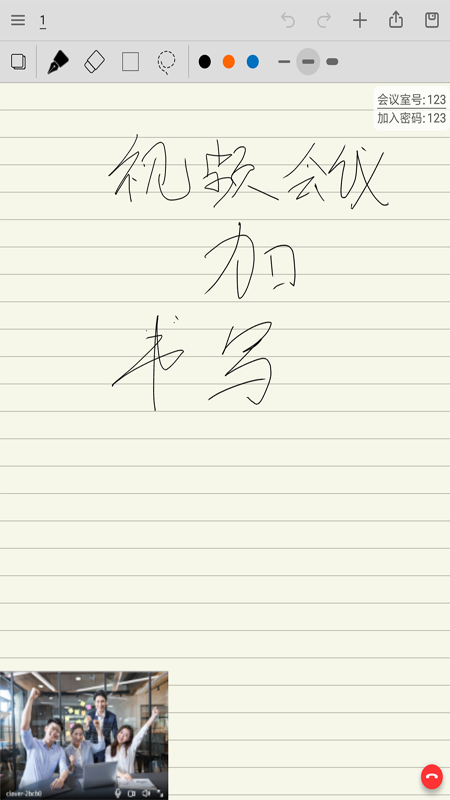 1
会议室号:123
加入密码:123
视频会议
加
书写
clever-2bcb0